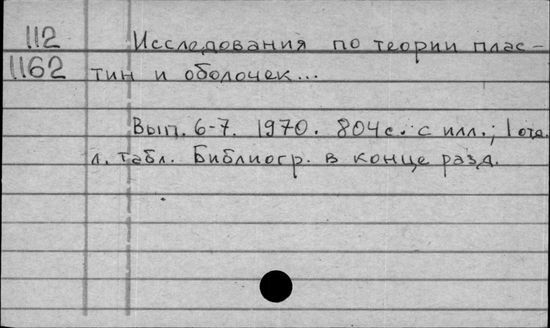 112 Исследования по теории плас-
1162 тин и оболочек...
Вып. 6-7. 1970. 804 с. с илл.; 1 отд.
л. табл. Библиогр. в конце разд.